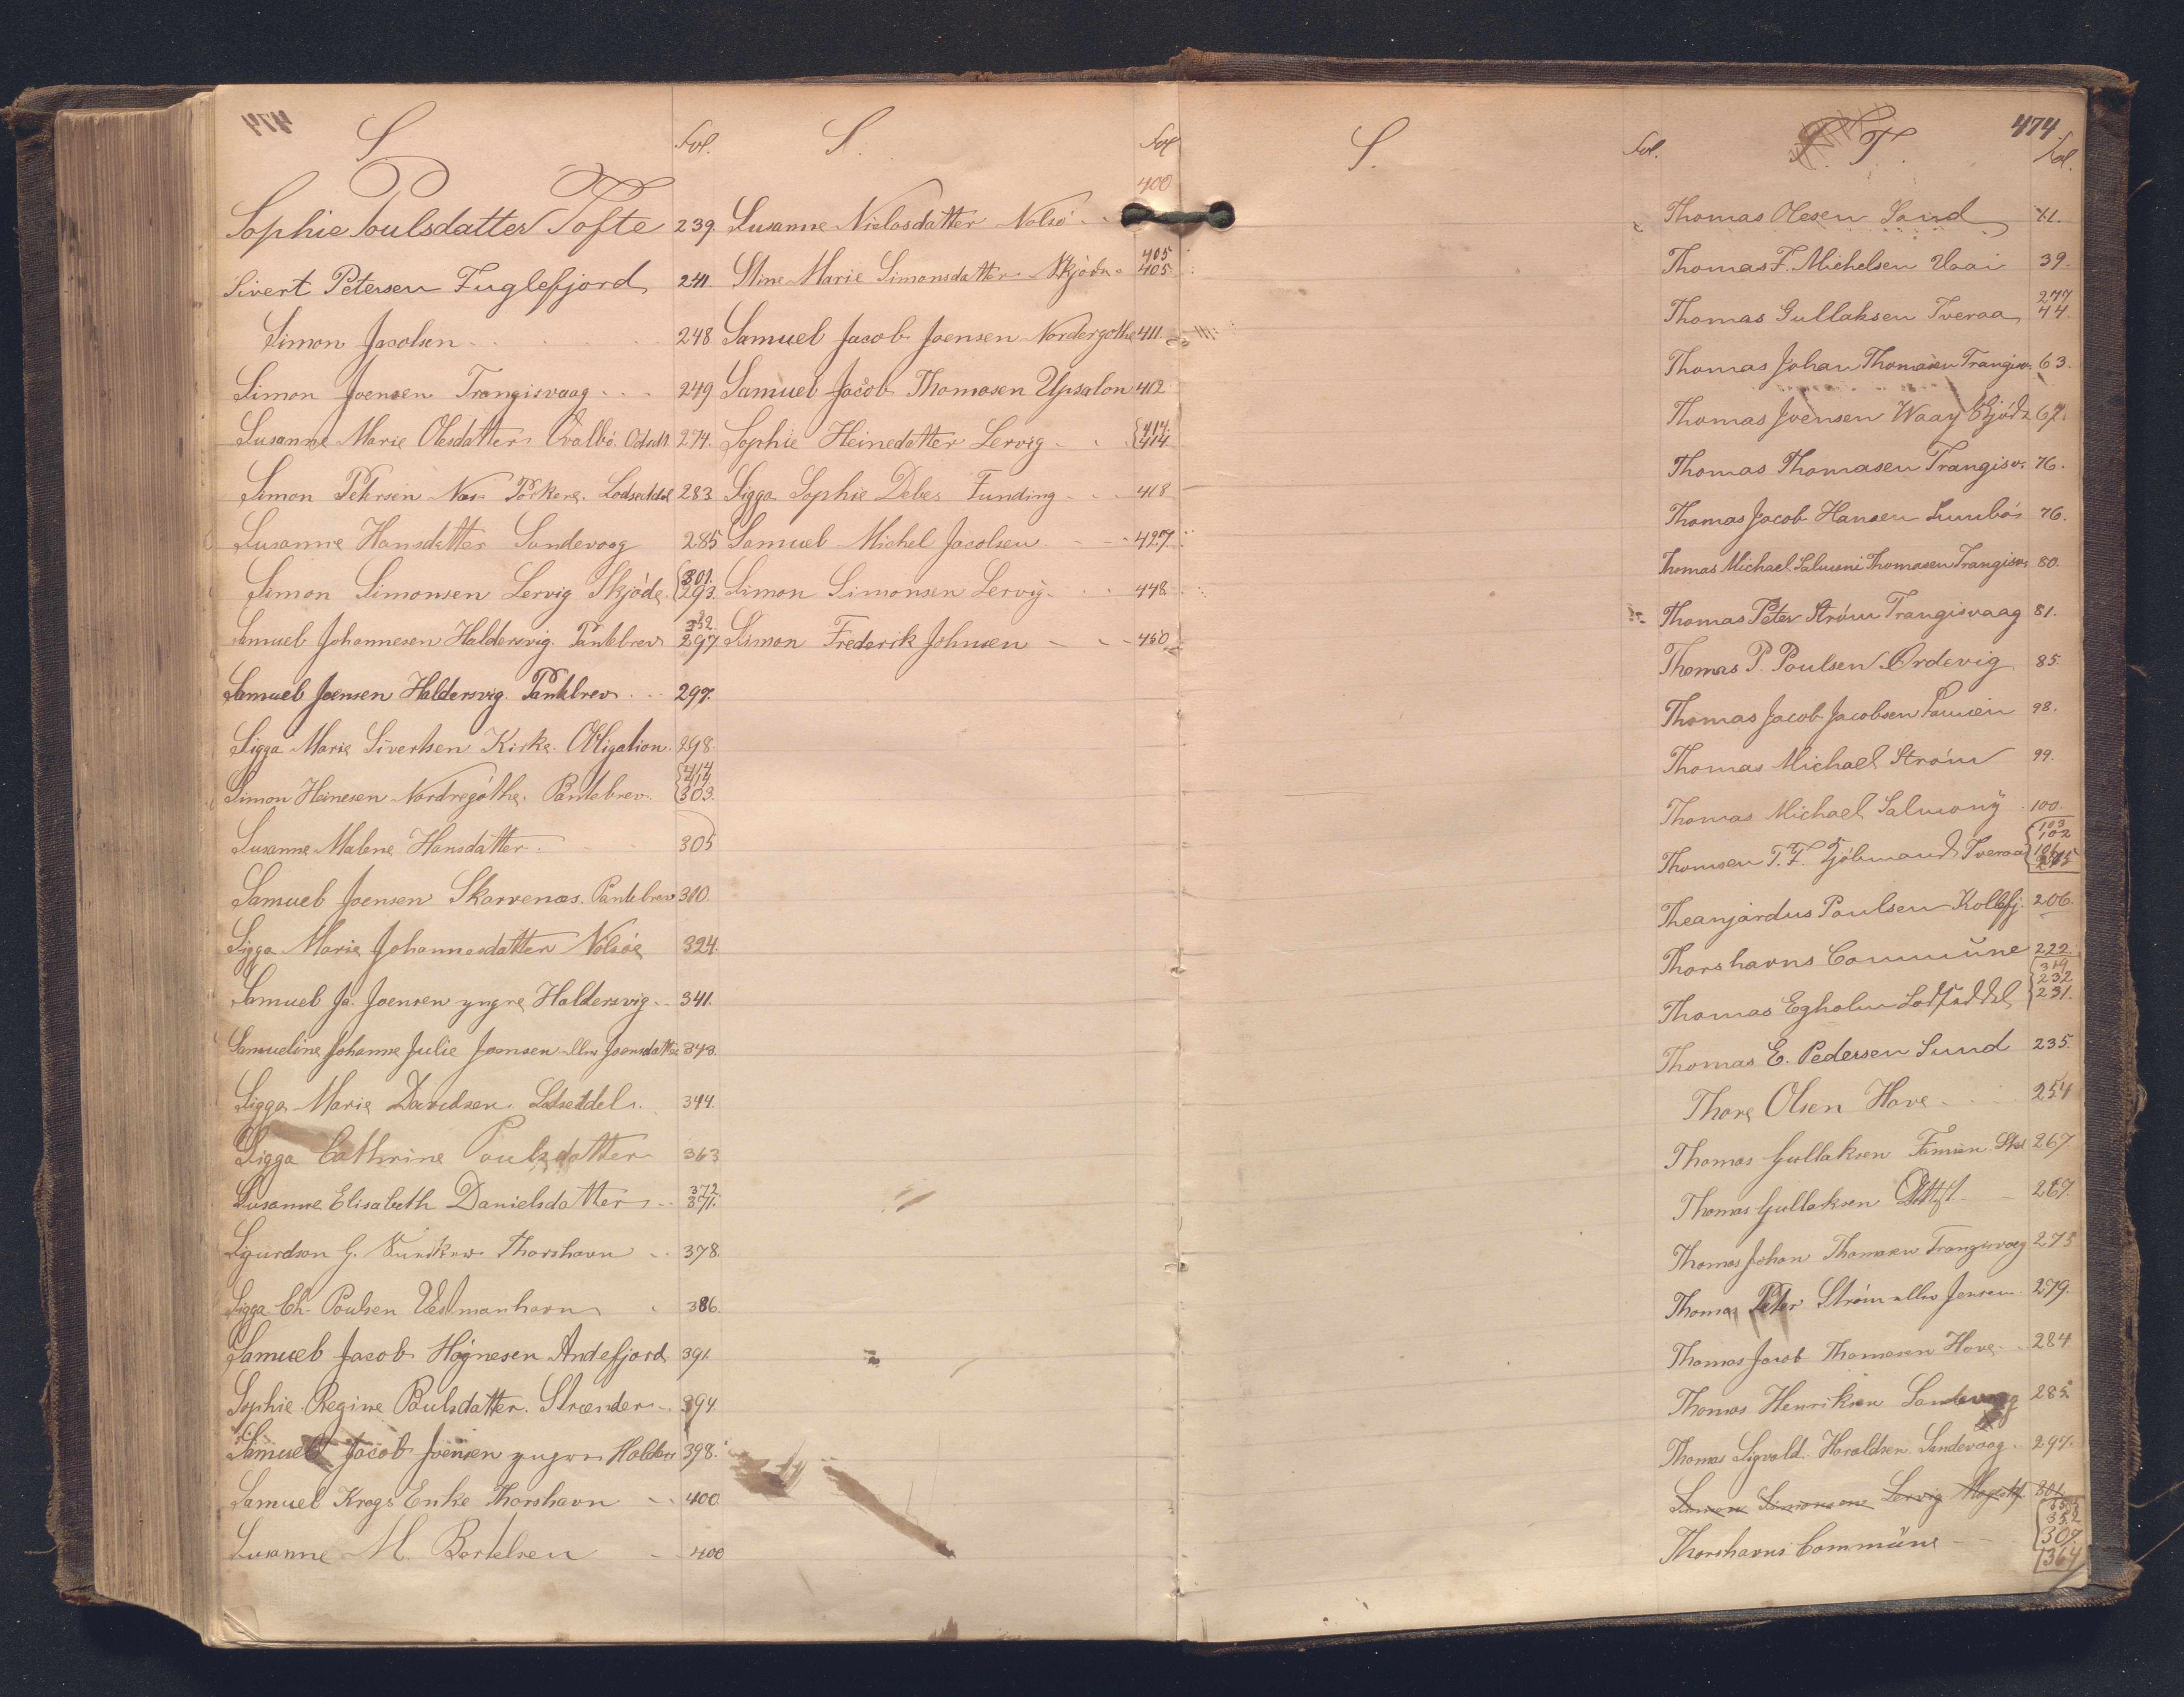 S
Fol.
Sophie Poulsdatter Tofte 239.
Sivert Petersen Fuglefjord 241.
Simon Jacobsen 248
Simon Joensen Trangisvaag 249
Susanne Marie Olesdatter Qvalbö. 274.
Simon Petersen Næs Porkere. Lodseddel 283
Susanne Hansdatter Sandevaag 285
Simon Simonsen Lervig Skjöde. 301. 293.
Samuel Johannesen Haldersvig. Pantebrev 332. 297
Samuel Joensen Haldersvig. Pantebrev 297.
Sigga Marie Sivertsen Kirke. Obligation. 298.
Simon Heinesen Nordregöthe. Pantebrev. 414 414 303.
Susanne Malene Hansdatter. 305
Samuel Joensen Skarvenæs. Pantebrev 310.
Sigga Marie Johannesdatter Nolsöe 324.
Samuel Ja. Joensen yngre Haldersvig 341.
Samueline Johanne Julie Joensen eller Joensdatter 343.
Sigga Marie Davidsen. Lodseddel. 344.
Sigga Cathrine Poulsdatter 363
Susanne Elisabeth Danielsdatter 372 371.
Sigurdson G. Thorshavn 378.
Sigga Ch. Poulsen Vestmanhavn 386.
Samuel Jacob Högnesen Andefjord 391.
Sophie Regine Poulsdatter. Strænder 394.
Samuel Jacob Joensen yngre Halders 398.
Samuel Krogs Enke Thorshavn 400
Susanne M. Bertelsen 400
S.
Fol
400
Susanne Niclasdatter Nolsö
Stine Marie Simonsdatter Skjöde 405 405
Samuel Jacob Joensen Nordergöthe 411.
Samuel Jacob Thomasen Ypsalon 412
Sophie Heinedatter Lervig 414. 414
Sigga Sophie Debes Funding 418
Samuel Michel Jacobsen 427
Simon Simonsen Lervig 448.
Simon Frederik Johnsen 450.
S.
Fol.
T.
474.
Fol.
Thomas Olesen Sand 11.
Thomas F. Michelsen Vaai 39.
Thomas Gullaksen Tveraa 277 44.
Thomas Johan Thomasen Trangisv. 63.
Thomas Joensen Waay Skjöde 67.
Thomas Thomasen Trangisv. 76.
Thomas Jacob Hansen Sumbö 76.
Thomas Michael Salmoni Thomasen Trangisv. 80.
Thomas Peter Ström Trangisvaag 81.
Thomas P. Poulsen Ordevig 85.
Thomas Jacob Jacobsen Famien 98.
Thomas Michael Ström 99.
Thomas Michael Salmony 100.
Thomsen T. F. Kjöbmand Tveraa 103 102
Theanjardus Poulsen Kollefj. 206.
Thorshavns Commüne 222.
Thomas Egholm Lodseddel 319 232 231.
Thomas E. Pedersen Sund 235.
Thore Olsen Hove 254
Thomas Gullaksen Famien 267
Thomas Gullaksen 267.
Thomas Johan Thomasen Trangisvaag 275
Thomas Peter Ström eller Jensen 279.
Thomas Jacob Thomasen Hove 284
Thomas Henriksen Sandevaag 285.
Thomas Sigvald Haraldsen Sandevaag 297.
Simon Simonsen Lervig 301.
Thorshavns Commüne 352 307 364